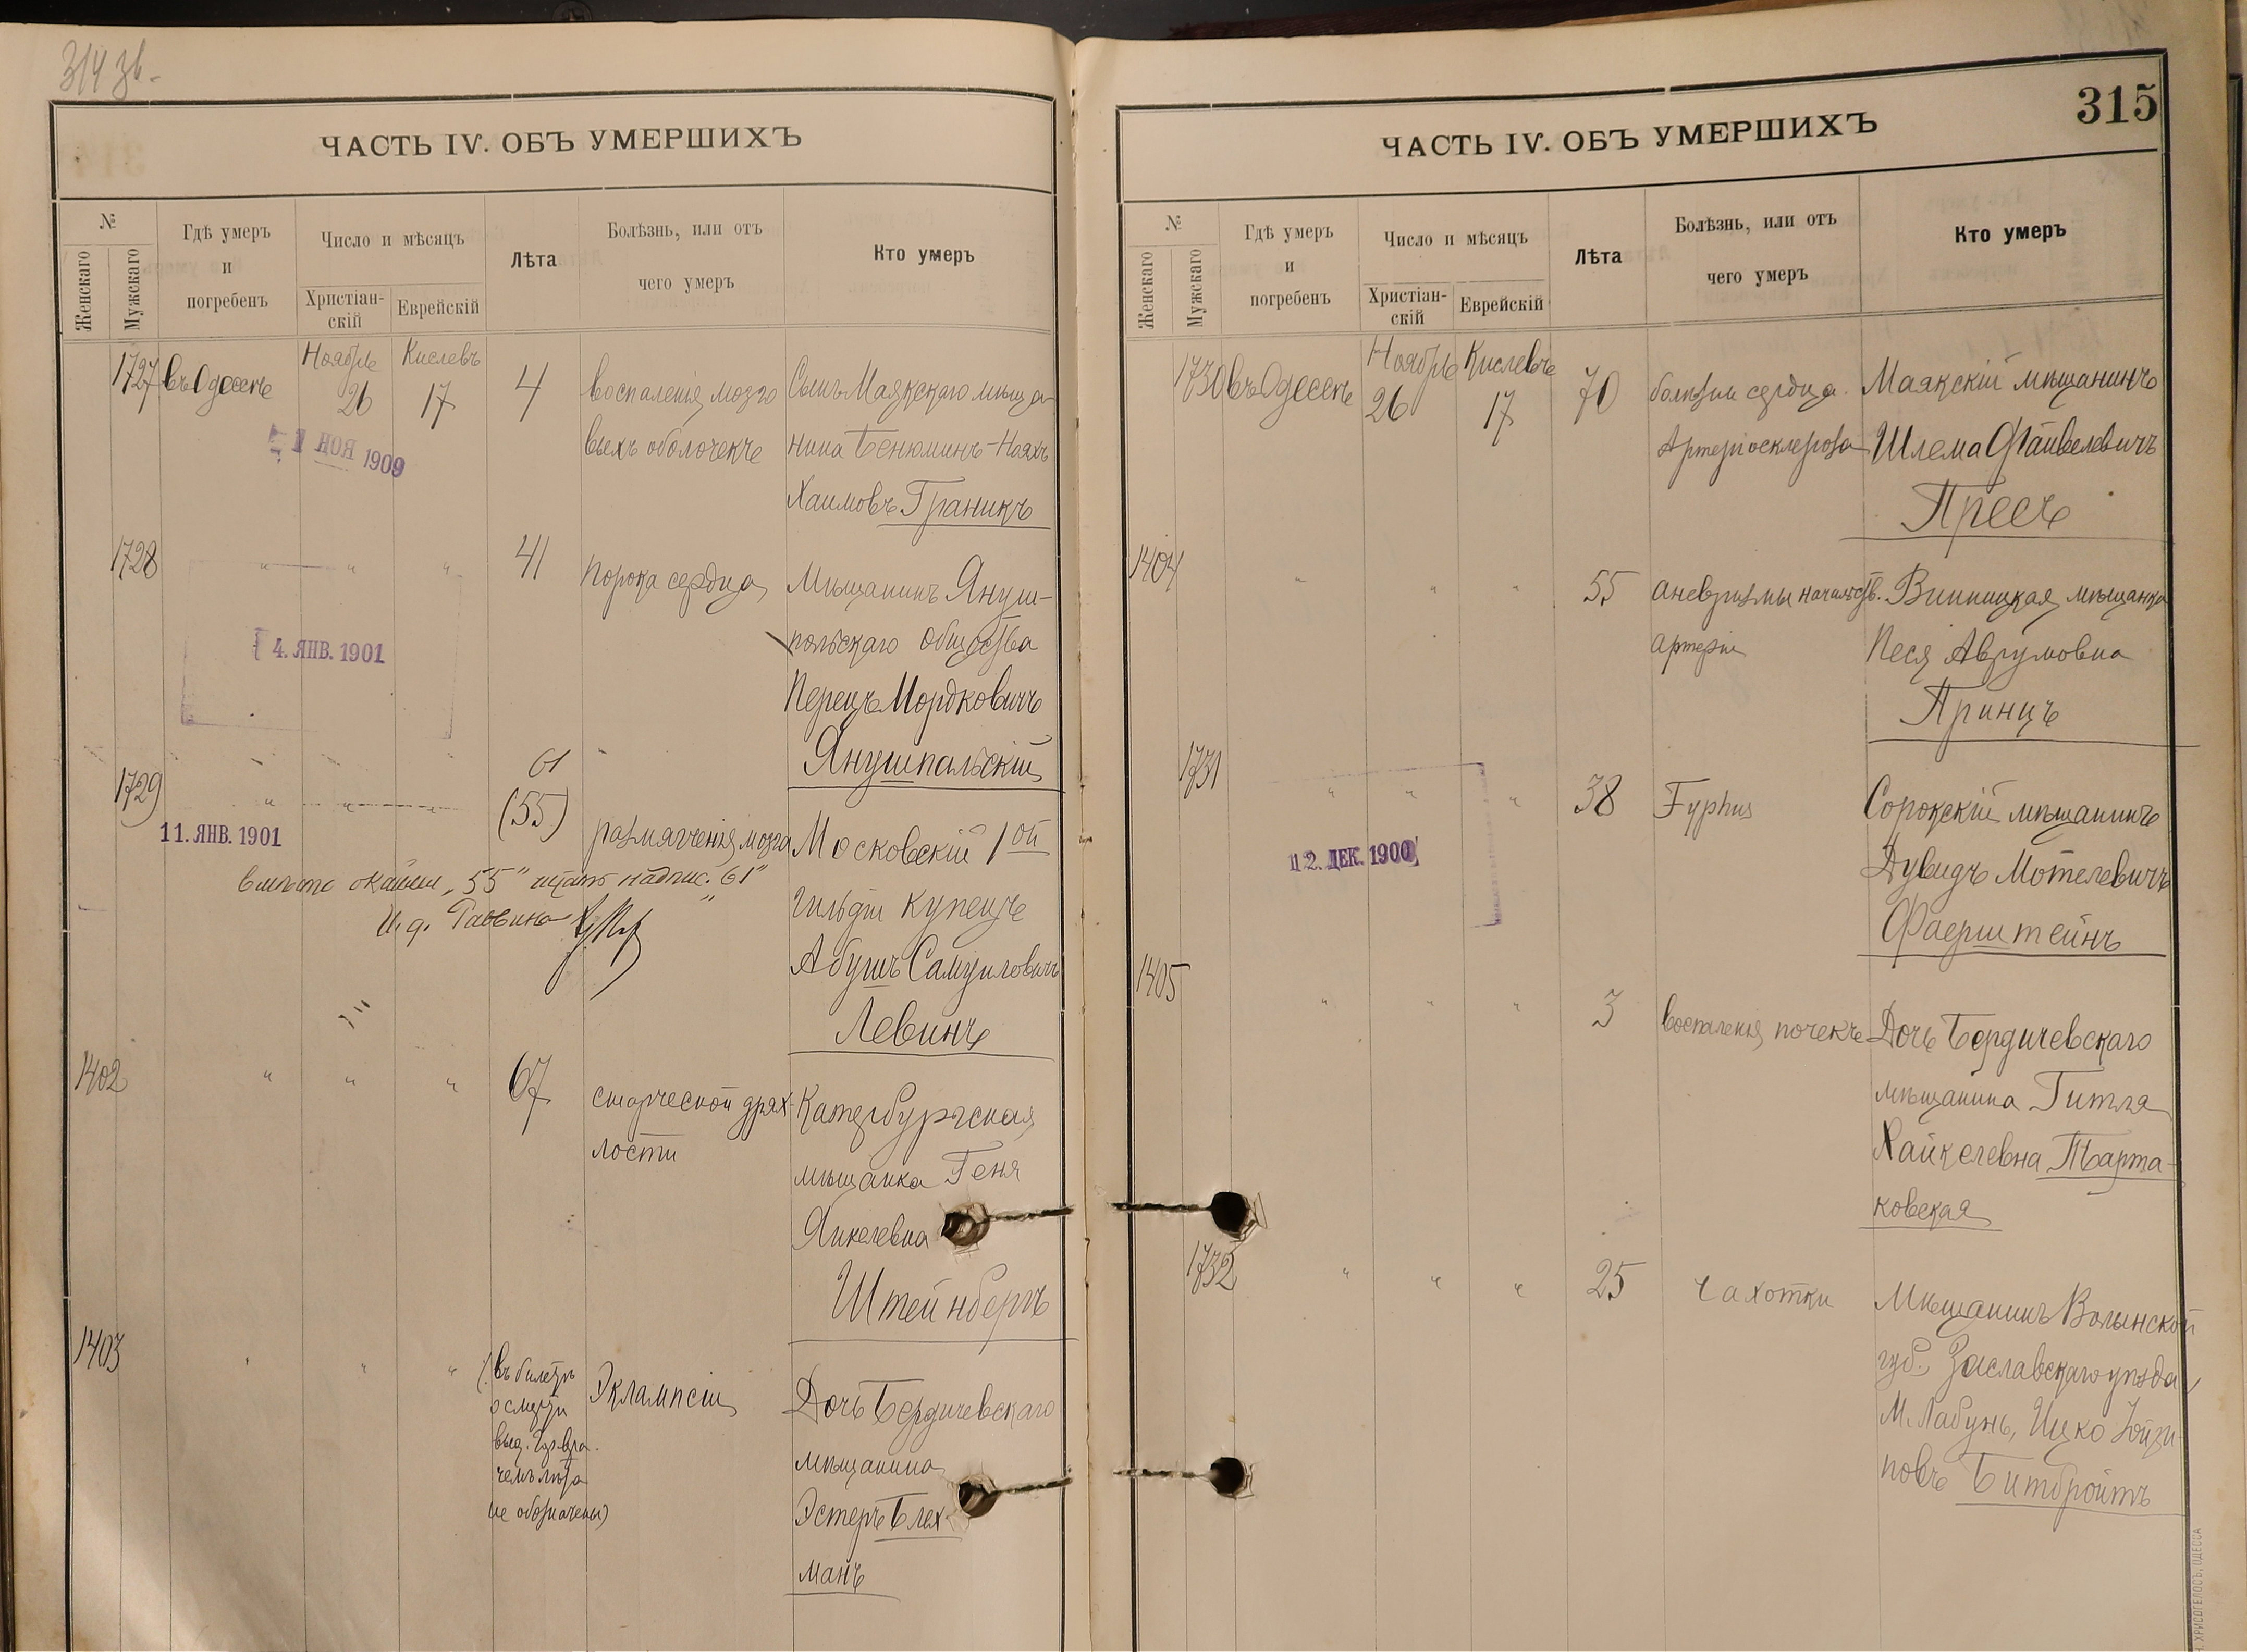 314 зв.
ЧАСТЬ IV. ОБЪ УМЕРШИХЪ
№
Женскаго
Мужскаго
Гдѣ умеръ
и
погребенъ
Число и мѣсяцъ
Христіан-
скій
Еврейскій
Лѣта
Болѣзнь, или отъ
чего умеръ
Кто умеръ
1727 въ Одессѣ Ноябрь 26 Кислевъ 17 4 воспаленія мозго Сынъ Маякскаго мѣща-
выхъ оболочекъ нина Бенюминъ-Ноахъ
Хаимовъ Граникъ
1 НОЯ 1909
1728 " " " 41 порока сердца Мѣщанинъ Януш-
польскаго общества
Перецъ Мордковичъ
Янушпальскій
4. ЯНВ. 1901
61
1729 " " (55) размягченія мозга Московскій 1ой
гильдіи купецъ
Абушъ Самуиловичъ
Левинъ
11. ЯНВ. 1901
вмѣсто „55" надпис. „61"
И. д. Раввина
1402 " " " 67 старческой дрях- Катербургская
лости мѣщанка Геня
Янкелевна
Штейнбергъ
1403 " " " (въ билетѣ
о смерти
выд.
чемъ лѣта
не обозначены)
Эклампсіи Дочь Бердичевскаго
мѣщанина
Эстеръ Блех-
манъ
315
ЧАСТЬ IV. ОБЪ УМЕРШИХЪ
№
Женскаго
Мужскаго
Гдѣ умеръ
и
погребенъ
Число и мѣсяцъ
Христіан-
скій
Еврейскій
Лѣта
Болѣзнь, или отъ
чего умеръ
Кто умеръ
1730 въ Одессѣ Ноябрь 26 Кислевъ 17 70 болѣзни сердца. Маякскій мѣщанинъ
Артеріосклероза Шлема Файвелевичъ
Пресъ
1404 " " " 55 аневризмы Винницкая мѣщанка
артеріи Песя Аврумовна
Принцъ
1731 " " " 38 Typhus Сорокскій мѣщанинъ
Дувидъ Мотелевичъ
Фаерштейнъ
12. ДЕК. 1900
1405 " " " 3 воспаленія почекъ Дочь Бердичевскаго
мѣщанина Гитля
Хайкелевна Тарта-
ковская
1732 " " " 25 чахотки Мѣщанинъ Волынской
губ., Заславскаго уѣзда,
М. Лабунь, Ицко
повъ Битбройтъ
Н. ХРИСОГЕЛОСЪ, ОДЕССА